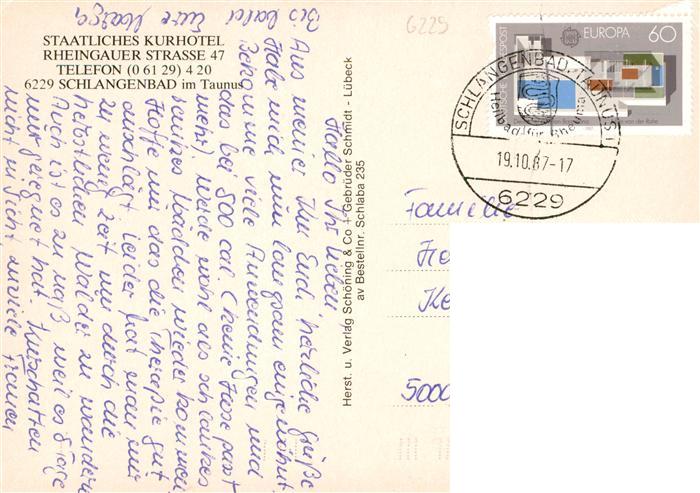 6229
STAATLICHES KURHOTEL
RHEINGAUER STRASSE 47
TELEFON (0 61 29) 4 20
6229 SCHLANGENBAD im Taunus
Hallo Ihr Lieben
Aus meiner Kur Euch herzliche Grüße
Habe mich nun langsam eingewöhnt,
Bekomme viele Anwendungen und
das bei 800 cal. (keine Hose passt
mehr) werde wohl als schlankes
Mädchen wieder kommen
Hoffe nur das die Therapie gut
anschlägt. Leider hat man nur
zu wenig Zeit um durch die
herbstlichen Wälder zu wandern
Auch ist es zu naß weil es 8 Tage
nur geregnet hat. Kurschatten
nicht in Sicht, zuviele Frauen
Bis bald Eure
Herst. u. Verlag Schöning & Co + Gebrüder Schmidt - Lübeck
av BestellNr. Schlaba 235
EUROPA 60
SCHLANGENBAD, TAUNUS 1
Heilbad für Rheuma
19.10.87-17
6229
Familie
5000